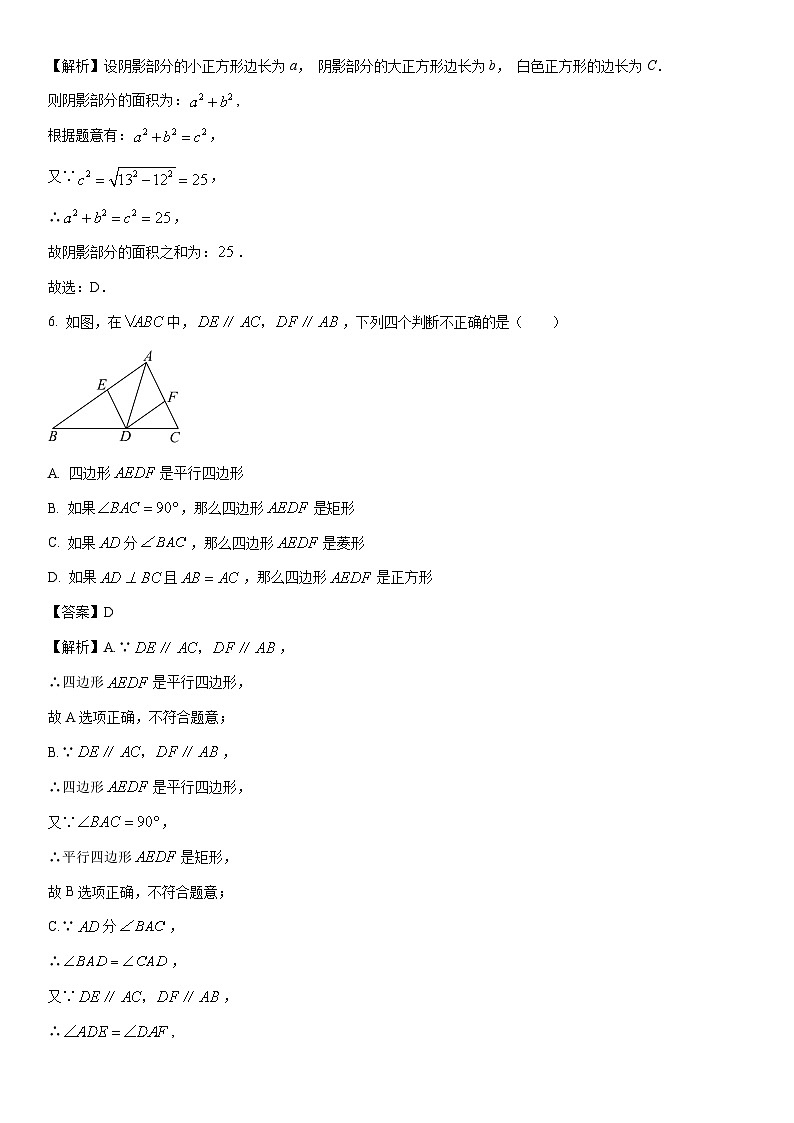 【解析】设阴影部分的小正方形边长为a， 阴影部分的大正方形边长为b， 白色正方形的边长为C.
则阴影部分的面积为：a²+b²，
根据题意有：a²+b²=c²，
又∵c²=√(13²−12²)=25，
∴a²+b²=c²=25，
故阴影部分的面积之和为：25．
故选：D.
6. 如图，在\/ABC中，DE∥AC，DF∥AB，下列四个判断不正确的是（　　）
A
E
F
B D C
A. 四边形AEDF是平行四边形
B. 如果∠BAC=90°，那么四边形AEDF是矩形
C. 如果AD分∠BAC，那么四边形AEDF是菱形
D. 如果AD⊥BC且AB=AC，那么四边形AEDF是正方形
【答案】D
【解析】A.∵DE∥AC，DF∥AB，
∴四边形AEDF是平行四边形，
故A选项正确，不符合题意；
B.∵DE∥AC，DF∥AB，
∴四边形AEDF是平行四边形，
又∵∠BAC=90°，
∴平行四边形AEDF是矩形，
故B选项正确，不符合题意；
C.∵AD分∠BAC，
∴∠BAD=∠CAD，
又∵DE∥AC，DF∥AB，
∴∠ADE=∠DAF，